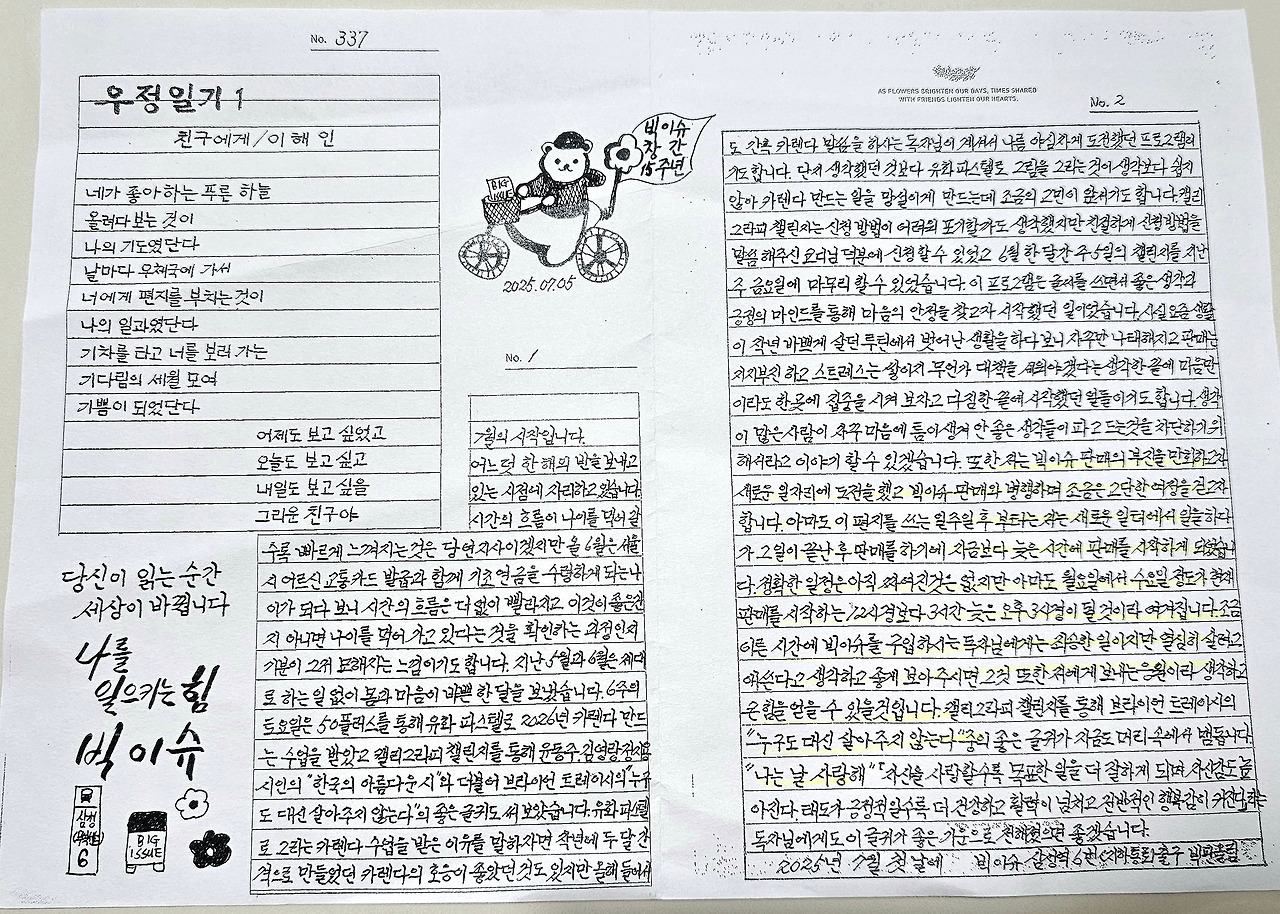 No. 337
우정일기 1
친구에게/이해인
네가 좋아하는 푸른 하늘
올려다보는 것이
나의 기도였단다
날마다 우체국에 가서
너에게 편지를 부치는 것이
나의 일과였단다
기차를 타고 너를 보러 가는
기다림의 세월 모여
기쁨이 되었단다
어제도 보고 싶었고
오늘도 보고 싶고
내일도 보고 싶을
그리운 친구야
빅이슈
창간
15주년
BIG
ISSUE
2025.07.05
당신이 읽는 순간
세상이 바뀝니다
나를
일으키는 힘
빅이슈
삼성
6
BIG
ISSUE
No. 1
7월의 시작입니다.
어느덧 한 해의 반을 보내고
있는 시점에 자리하고 있습니다.
시간의 흐름이 나이를 먹어 갈
수록 빠르게 느껴지는 것은 당연지사이겠지만 올 6월은 서울
시 어르신 교통카드 발급과 함께 기초연금을 수령하게 되는 나
이가 되다 보니 시간의 흐름은 더 없이 빨라지고 이것이 좋은건
지 아니면 나이를 먹어 가고 있다는 것을 확인하는 과정인지
기분이 그저 묘해지는 느낌이기도 합니다. 지난 5월과 6월은 제대
로 하는 일 없이 몸과 마음이 바쁜 한 달을 보냈습니다. 6주의
토요일은 50플러스를 통해 유화 파스텔로 2026년 카렌다 만드
는 수업을 받았고 캘리그라피 챌린지를 통해 윤동주.김영랑.정지용
시인의 "한국의 아름다운 시"와 더불어 브라이언 트레이시의 "누구
도 대신 살아주지 않는다"의 좋은 글귀도 써 보았습니다. 유화 파스텔
로 그리는 카렌다 수업을 받은 이유를 말하자면 작년에 두 달 간
격으로 만들었던 카렌다의 호응이 좋았던 것도 있지만 올해 들어서
AS FLOWERS BRIGHTEN OUR DAYS, TIMES SHARED
WITH FRIENDS LIGHTEN OUR HEARTS.
No. 2
도 간혹 카렌다 말씀을 하시는 독자님이 계셔서 나름 야심차게 도전했던 프로그램이
기도 합니다. 단지 생각했던 것보다 유화 파스텔로 그림을 그리는 것이 생각보다 쉽지
않아 카렌다 만드는 일을 망설이게 만드는데 조금의 고민이 앞서기도 합니다. 캘리
그라피 챌린지는 신청 방법이 어려워 포기할까도 생각했지만 친절하게 신청방법을
말씀 해주신 코디님 덕분에 신청할 수 있었고 6월 한 달간 주 5일의 챌린지를 지난
주 금요일에 마무리 할 수 있었습니다. 이 프로그램은 글씨를 쓰면서 좋은 생각과
긍정의 마인드를 통해 마음의 안정을 찾고자 시작했던 일이었습니다. 사실 요즘 생활
이 작년 바쁘게 살던 루틴에서 벗어난 생활을 하다 보니 자꾸만 나태해지고 판매는
지지부진 하고 스트레스는 쌓이지 무언가 대책을 세워야겠다는 생각한 끝에 마음만
이라도 한곳에 집중을 시켜 보자고 다짐한 끝에 시작했던 일들이기도 합니다. 생각
이 많은 사람이 자꾸 마음에 틈이 생겨 안 좋은 생각들이 파고 드는것을 차단하기 위
해서라고 이야기 할 수 있겠습니다. 또한 저는 빅이슈 판매의 부진을 만회하고자
새로운 일자리에 도전을 했고 빅이슈 판매와 병행하며 조금은 고단한 여정을 걷고자
합니다. 아마도 이 편지를 쓰는 일주일 후 부터는 저는 새로운 일터에서 일을 하다
가 그일이 끝난 후 판매를 하기에 지금보다 늦은 시간에 판매를 시작하게 되었습니
다. 정확한 일정은 아직 짜여진것은 없지만 아마도 월요일에서 수요일 정도가 현재
판매를 시작하는 12시경보다 3시간 늦은 오후 3시경이 될 것이라 여겨집니다. 조금
이른 시간에 빅이슈를 구입하시는 독자님에게는 죄송한 일이지만 열심히 살려고
애쓴다고 생각하고 좋게 보아 주시면 그것 또한 저에게 보내는 응원이라 생각하고
큰 힘을 얻을 수 있을것입니다. 캘리그라피 챌린지를 통해 브라이언 트레이시의
"누구도 대신 살아주지 않는다"중의 좋은 글귀가 지금도 머리 속에서 맴돕니다.
"나는 날 사랑해" "자신을 사랑할수록 목표한 일을 더 잘하게 되며 자신감도 높
아진다. 태도가 긍정적일수록 더 건강하고 활력이 넘치고 전반적인 행복감이 커진다."라는
독자님에게도 이 글귀가 좋은 기운으로 전해졌으면 좋겠습니다.
2025년 7월 첫 날에 빅이슈 삼성역 6번 (지하통로) 출구 빅판올림